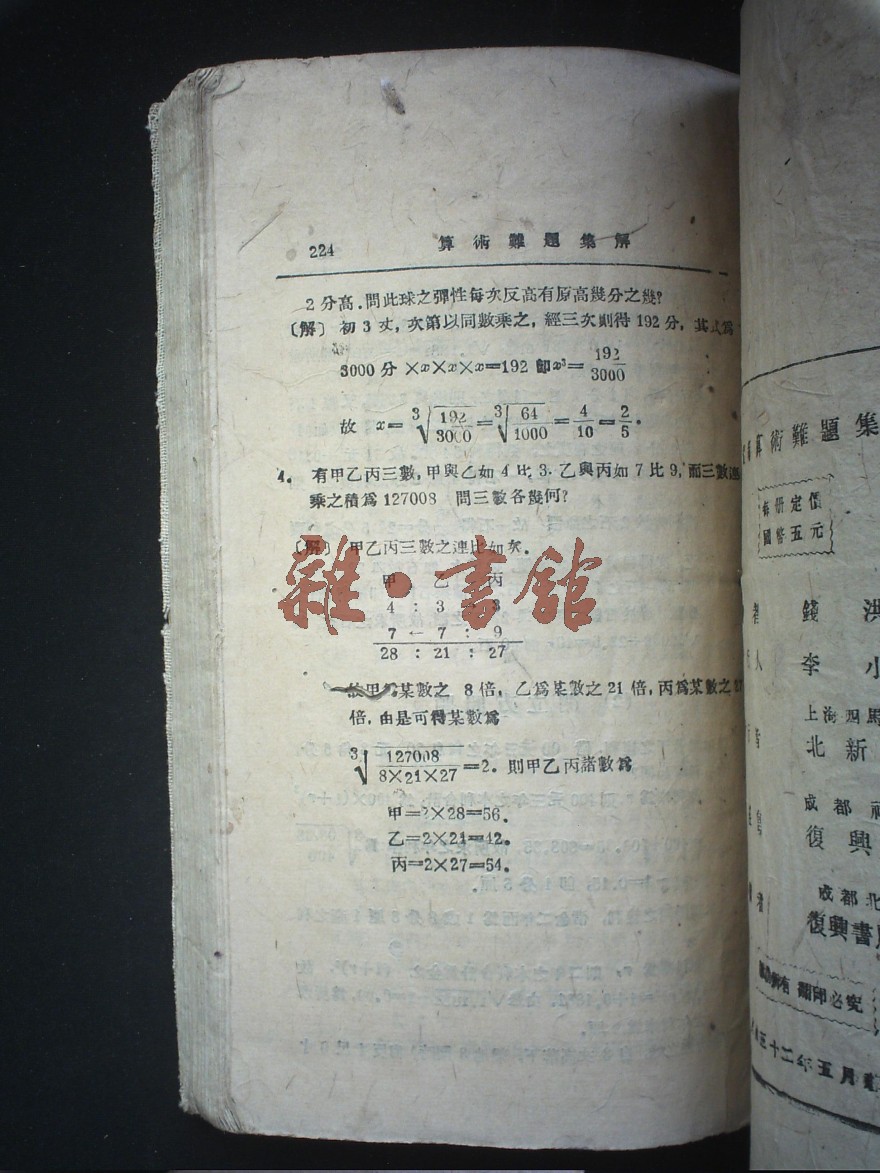 224 算術難題集解
2分高.問此球之彈性每次反高有原高幾分之幾?
〔解〕 初3丈,次第以同數乘之,經三次則得192分,其式爲
3000分×x×x×x=192 卽x³=192/3000
故 x=³√(192/3000)=³√(64/1000)=4/10=2/5.
4. 有甲乙丙三數,甲與乙如4比3.乙與丙如7比9,而三數連
乘之積爲127008 問三數各幾何?
〔解〕 甲乙丙三數之連比如次.
甲 乙 丙
4 : 3 = 3
7 ← 7 : 9
28 : 21 : 27
故甲爲某數之 8倍, 乙爲某數之21倍,丙爲某數之
倍.由是可得某數爲
³√(127008/8×21×27)=2. 則甲乙丙諸數爲
甲=2×28=56.
乙=2×21=42.
丙=2×27=54.
雜·書館
算術難題集
每册定價
國幣五元
者 錢 洪
人 李 小
上海四馬
北新
成都
復興
成都北
復興書
翻印必究
三十二年五月